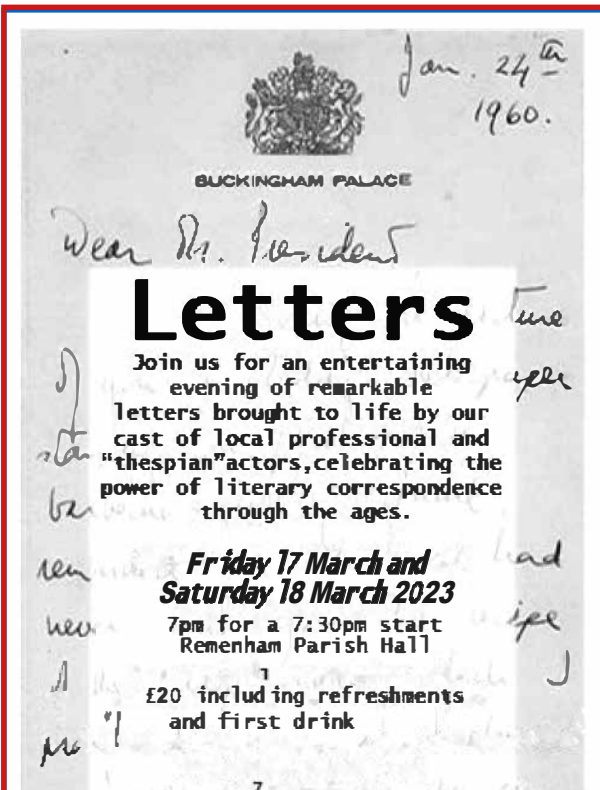 Jan. 24th
1960.
BUCKINGHAM PALACE
Dear Mr. President
Letters
Join us for an entertaining
evening of remarkable
letters brought to life by our
cast of local professional and
"thespian"actors,celebrating the
power of literary correspondence
through the ages.
Friday 17 March and
Saturday 18 March 2023
7pm for a 7:30pm start
Remenham Parish Hall
£20 including refreshments
and first drink